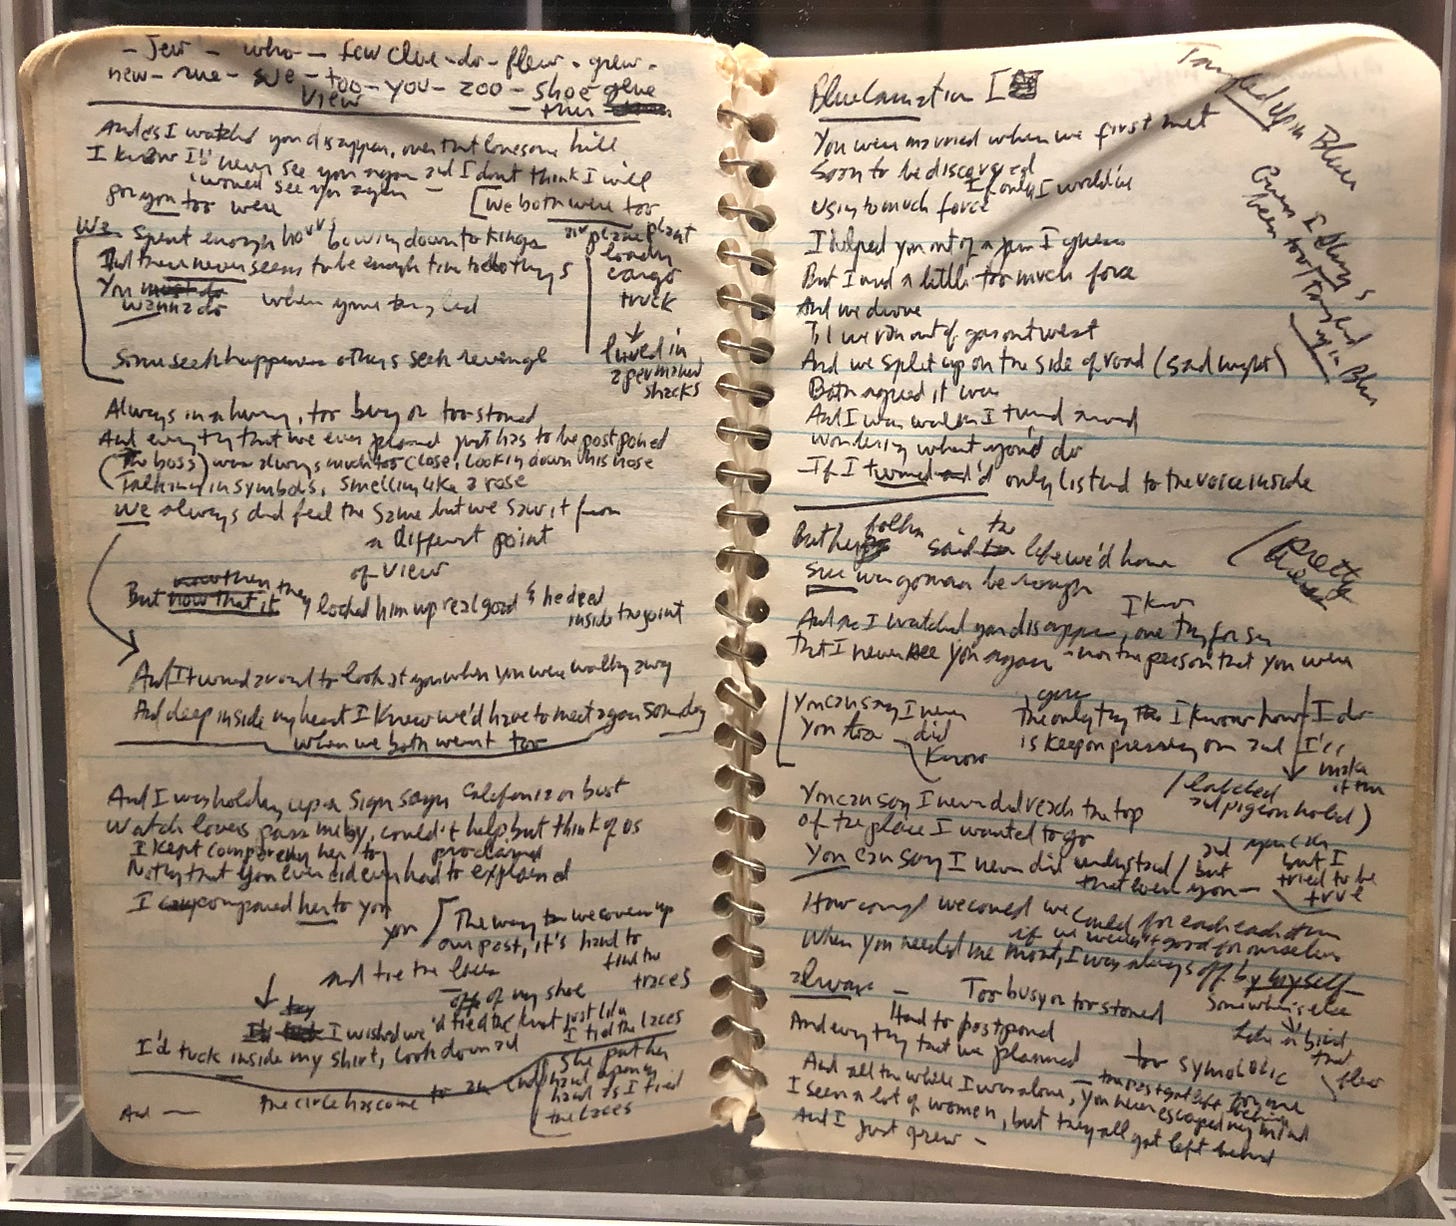 - Jew - who - few clue - do - flew - grew -
new - rue - sue - too - you - zoo - shoe glue
view - thru
And as I watched you disappear, over that lonesome hill
I know I'd never see you again and I dont think I will
I would see you again -
you too were [we both were too
We spent enough hours bowing down to kings
But there never seems to be enough time to do the things
You must do
wanna do when youre tangled
Some seek happiness others seek revenge
airplane plant
loading
cargo
truck
lived in
shacks
Always in a hurry, too busy or too stoned
And everything that we ever planned just has to be postponed
(The boss) was always much too close, looking down his nose
Talking in symbols, smelling like a rose
We always did feel the same but we saw it from
a different point
of view
But now that it they locked him up real good & he died
inside the joint
And I turned around to look at you when you were walking away
And deep inside my heart I knew we'd have to meet again someday
when we both weren't too
And I was holding up a sign saying California or bust
Watch lovers pass me by, couldn't help but think of us
I kept comparing her to proclaimed
Nothing that you ever did ever had to explained
I compared her to you
you [The way we cover up
our past, it's hard to
find the
traces
and tie the laces
off of my shoe
try
I wished we'd tied the knot just like
I tied the laces
I'd tuck inside my shirt, look down and
she put her
hand upon my
hand as I tied
the laces
the circle has come to an end
And —
Blue Carnation I
Tangled Up in Blue
You were married when we first met
Soon to be discovered
If only I would've
Using to much force
I helped you out of a jam I guess
But I used a little too much force
And we drove
Til we ran out of gas out west
And we split up on the side of road (sad night)
Both agreed it was
And I was walkin I turned around
Wondering what you'd do
If I turned and 'd only listend to the voice inside
But her folks said the life we'd have
Sure was gonna be rough
(Pretty
I know
And as I watched you disappear, one thing for sure
That I never see you again - nor the person that you were
You can say I never
You too did
know
The only thing I know how I do
is keep on pressing on and I'll
make
it thru
You can say I never did reach the top
of the place I wanted to go
(labeled
and pigeon holed)
You can say I never did understand / but
that even you —
and you can
but I
tried to be
true
How could we could for each other
if we weren't good for ourselves
When you needed me most, I was always off by myself
Somewhere else
always — Too busy or too stoned
Like a bird
that
flew
Had to postpond
And every thing that we planned
too symbolic
for me
And all the while I was alone, you never escaped my mind
the past got left behind
I seen a lot of women, but they all got left behind
And I just grew -